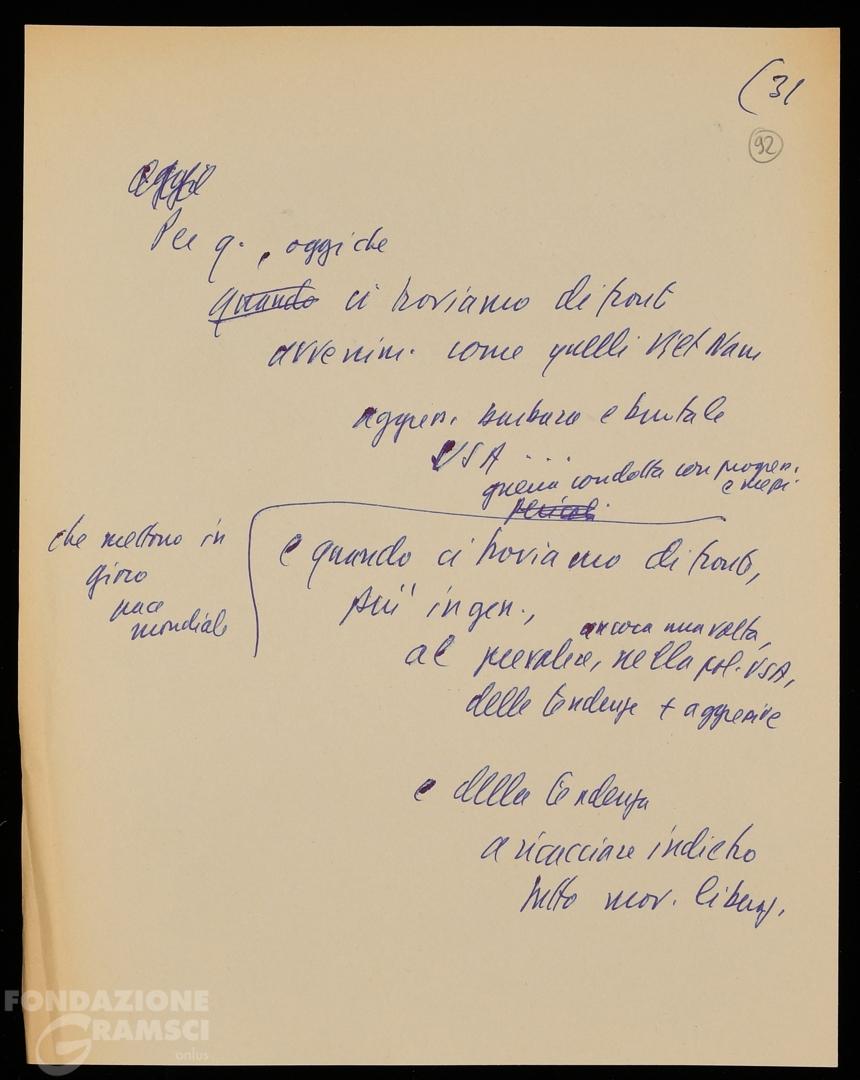 (31
92
oggi
Per q., oggi che
quando ci troviamo di front
avvenim. come quelli Viet Nam
aggres. barbara e brutale
USA ...
guerra condotta con progres.
e mezzi
pericoli
che mettono in
gioco
pace
mondiale
e quando ci troviamo di front,
più in gen.,
ancora una volta,
al prevalere, nella pol. USA,
delle tendenze + aggressive
e della tendenza
a ricacciare indietro
tutto mov. liberaz.
FONDAZIONE
GRAMSCI
onlus